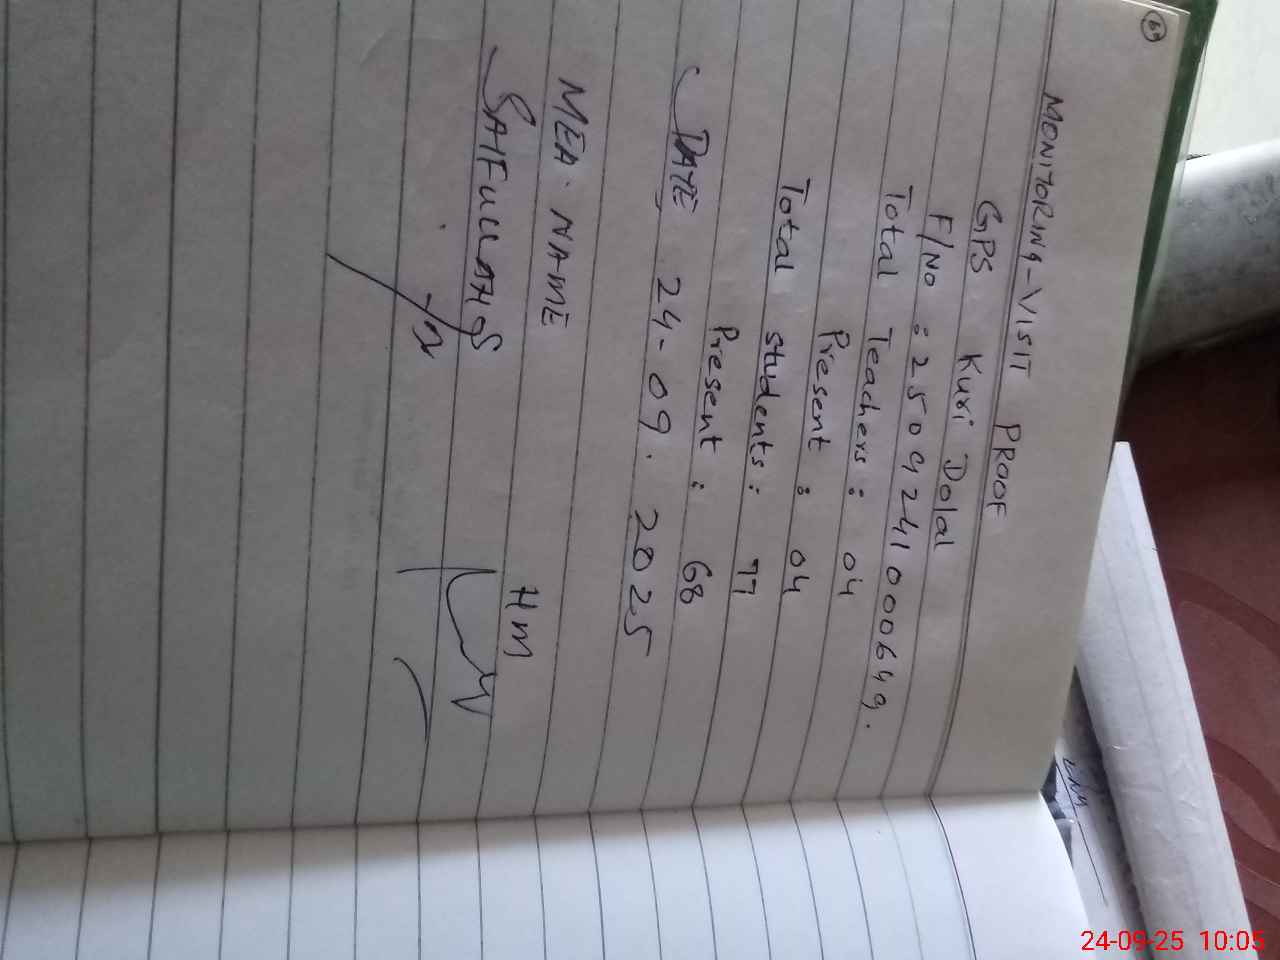 69
MONITORING-VISIT PROOF
GPS Kuri Dolal
F/No : 2509241000649.
Total Teachers : 04
Present : 04
Total students : 77
Present : 68
DATE 24-09.2025
MEA. NAME
HM
SAIFULLAH
24-09-25 10:05